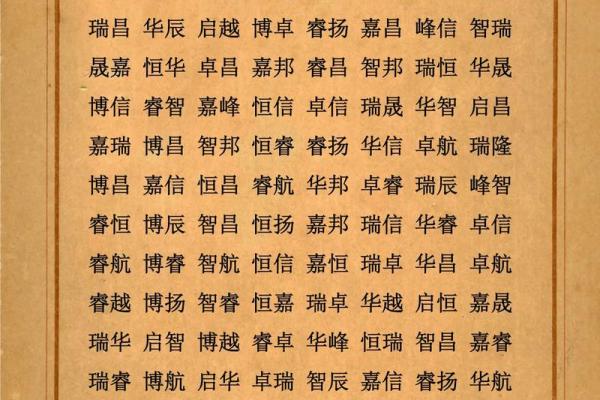 瑞昌 华辰 启越 博卓 睿扬 嘉昌 峰信 智瑞
晟嘉 恒华 卓昌 嘉邦 睿昌 智邦 瑞恒 华晟
博信 睿智 嘉峰 恒信 卓信 瑞晟 华智 启昌
嘉瑞 博昌 智邦 恒睿 睿扬 华信 卓航 瑞隆
博昌 嘉信 恒昌 睿航 华邦 卓睿 瑞辰 峰智
睿恒 博辰 智昌 恒扬 嘉邦 瑞信 华睿 卓信
睿航 博睿 智航 恒信 嘉恒 瑞卓 华昌 卓航
睿越 博扬 智睿 恒嘉 瑞卓 华越 启恒 嘉晟
瑞华 启智 博越 睿卓 华峰 恒瑞 智昌 嘉睿
瑞睿 博航 启华 卓瑞 智辰 嘉信 睿扬 华航